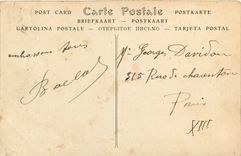 POST CARD Carte Postale POSTKARTE
BRIEFKAART - POSTKAART
CARTOLINA POSTALE - ОТКРЫТОЕ ПИСЬМО - TARJETA POSTAL
Georges Davidou
215 Rue de charenton
Paris
XIII